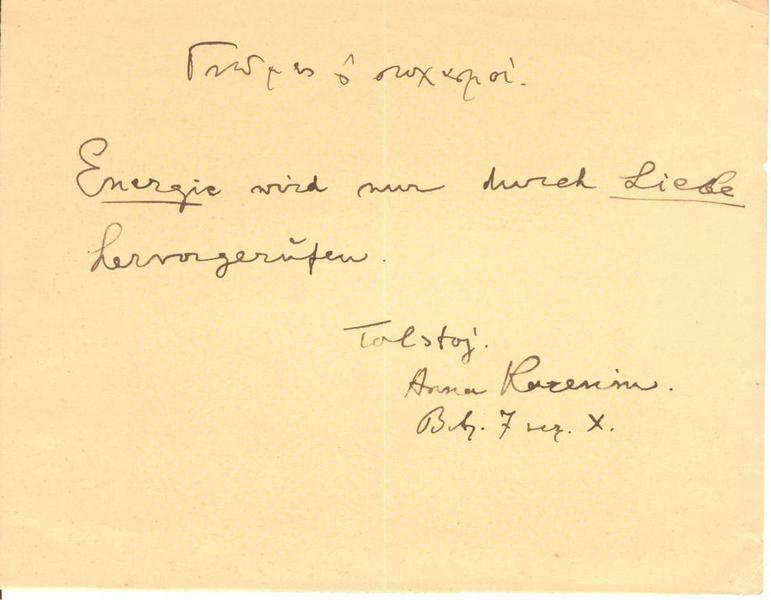 Γνῶμες & στοχασμοί.
Energie wird nur durch Liebe
hervorgerufen.
Tolstoj.
Anna Karenin.
Βιβ. 7 κεφ. X.